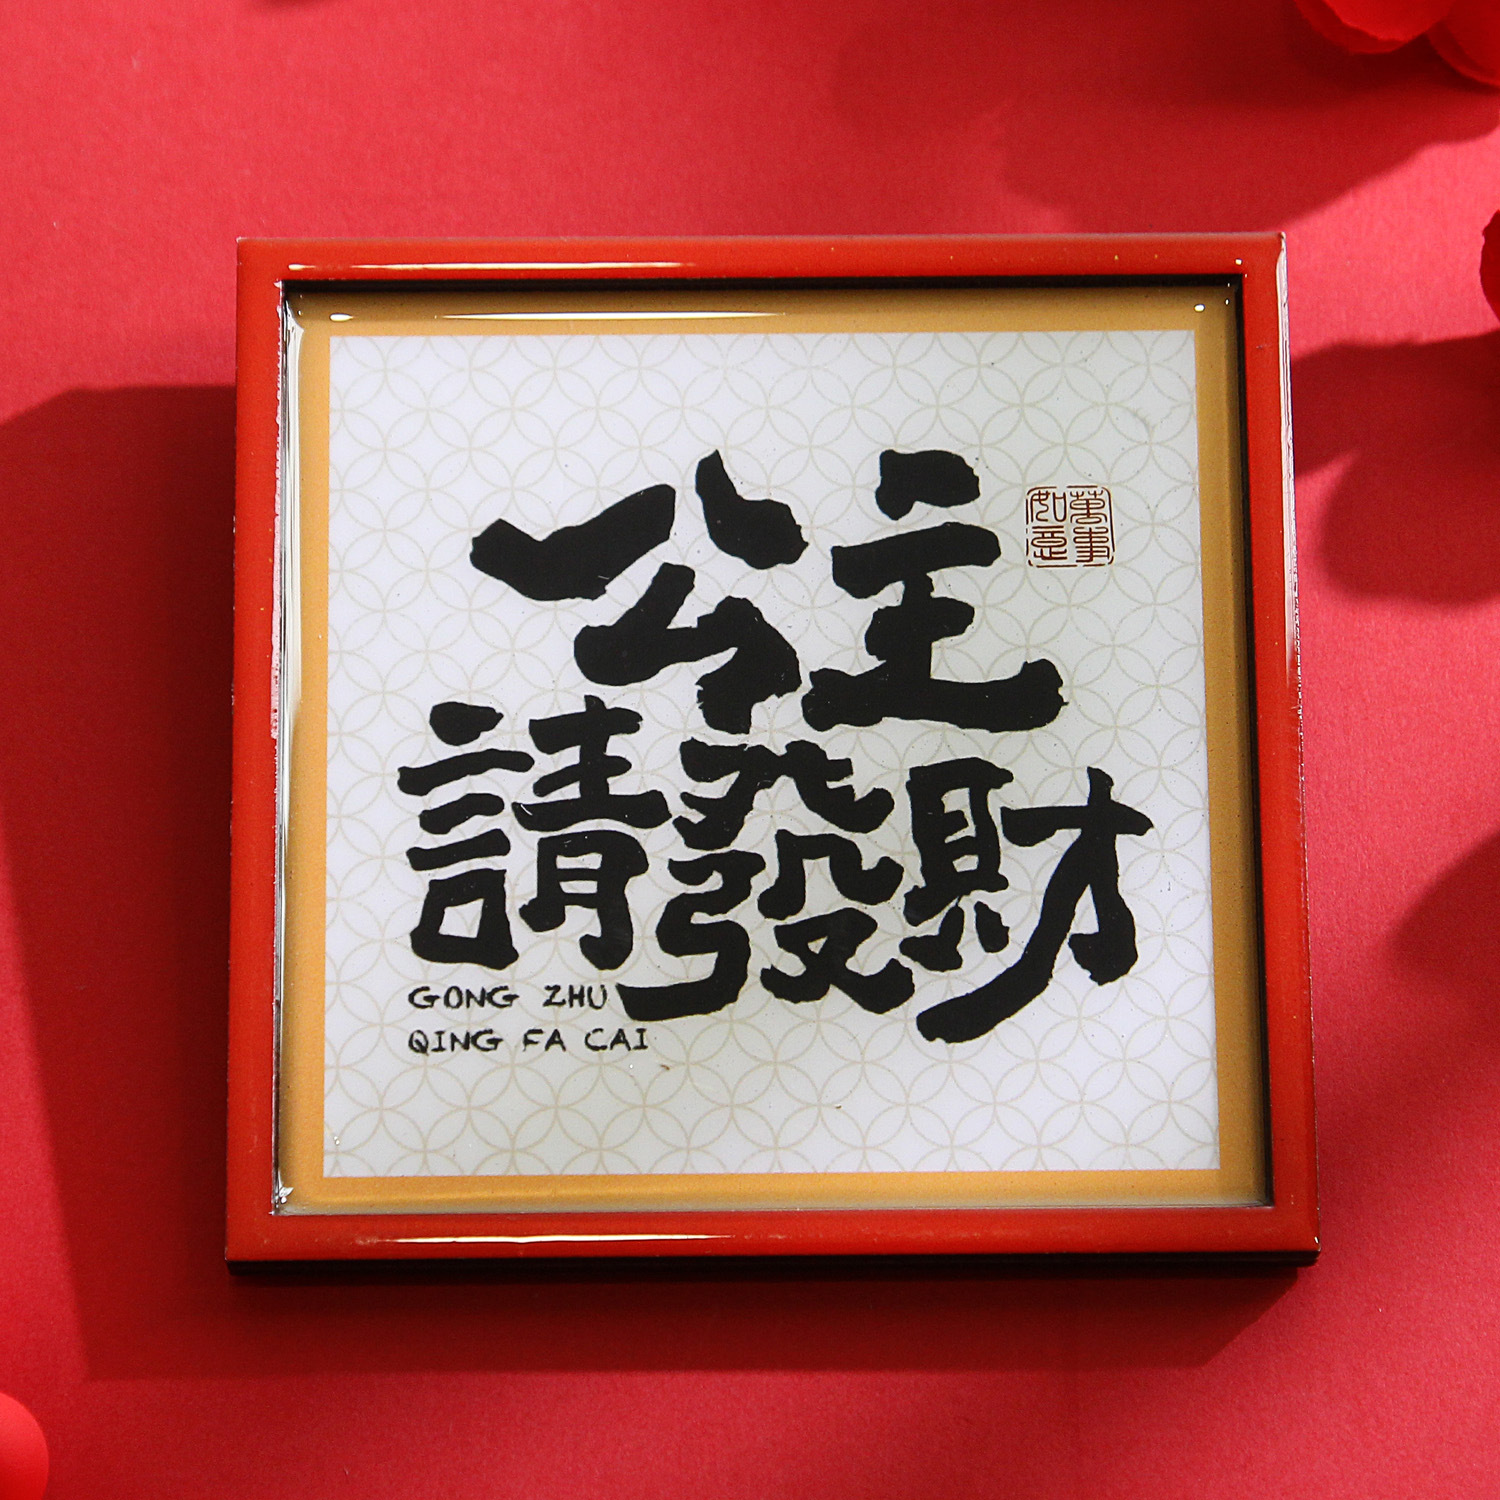 公主
萬事
如意
請發財
GONG ZHU
QING FA CAI